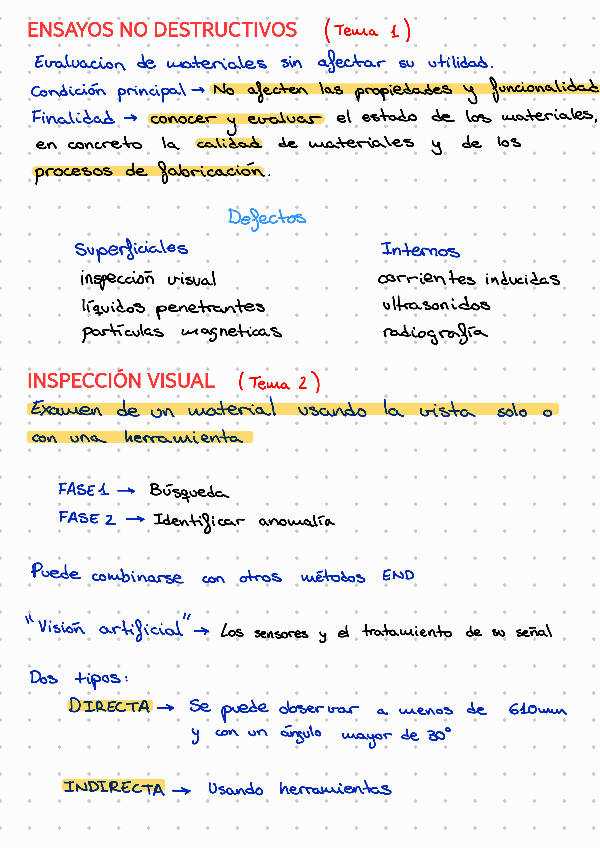 ENSAYOS NO DESTRUCTIVOS (Tema 1)
Evaluacion de materiales sin afectar su utilidad.
Condición principal → No afecten las propiedades y funcionalidad
Finalidad → conocer y evaluar el estado de los materiales,
en concreto la calidad de materiales y de los
procesos de fabricación.
Defectos
Superficiales Internos
inspección visual corrientes inducidas
líquidos penetrantes ultrasonidos
partículas magneticas radiografía
INSPECCIÓN VISUAL (Tema 2)
Examen de un material usando la vista solo o
con una herramienta
FASE 1 → Búsqueda
FASE 2 → Identificar anomalía
Puede combinarse con otros métodos END
"Visión artificial" → Los sensores y el tratamiento de su señal
Dos tipos:
DIRECTA → Se puede observar a menos de 610mm
y con un ángulo mayor de 30°
INDIRECTA → Usando herramientas